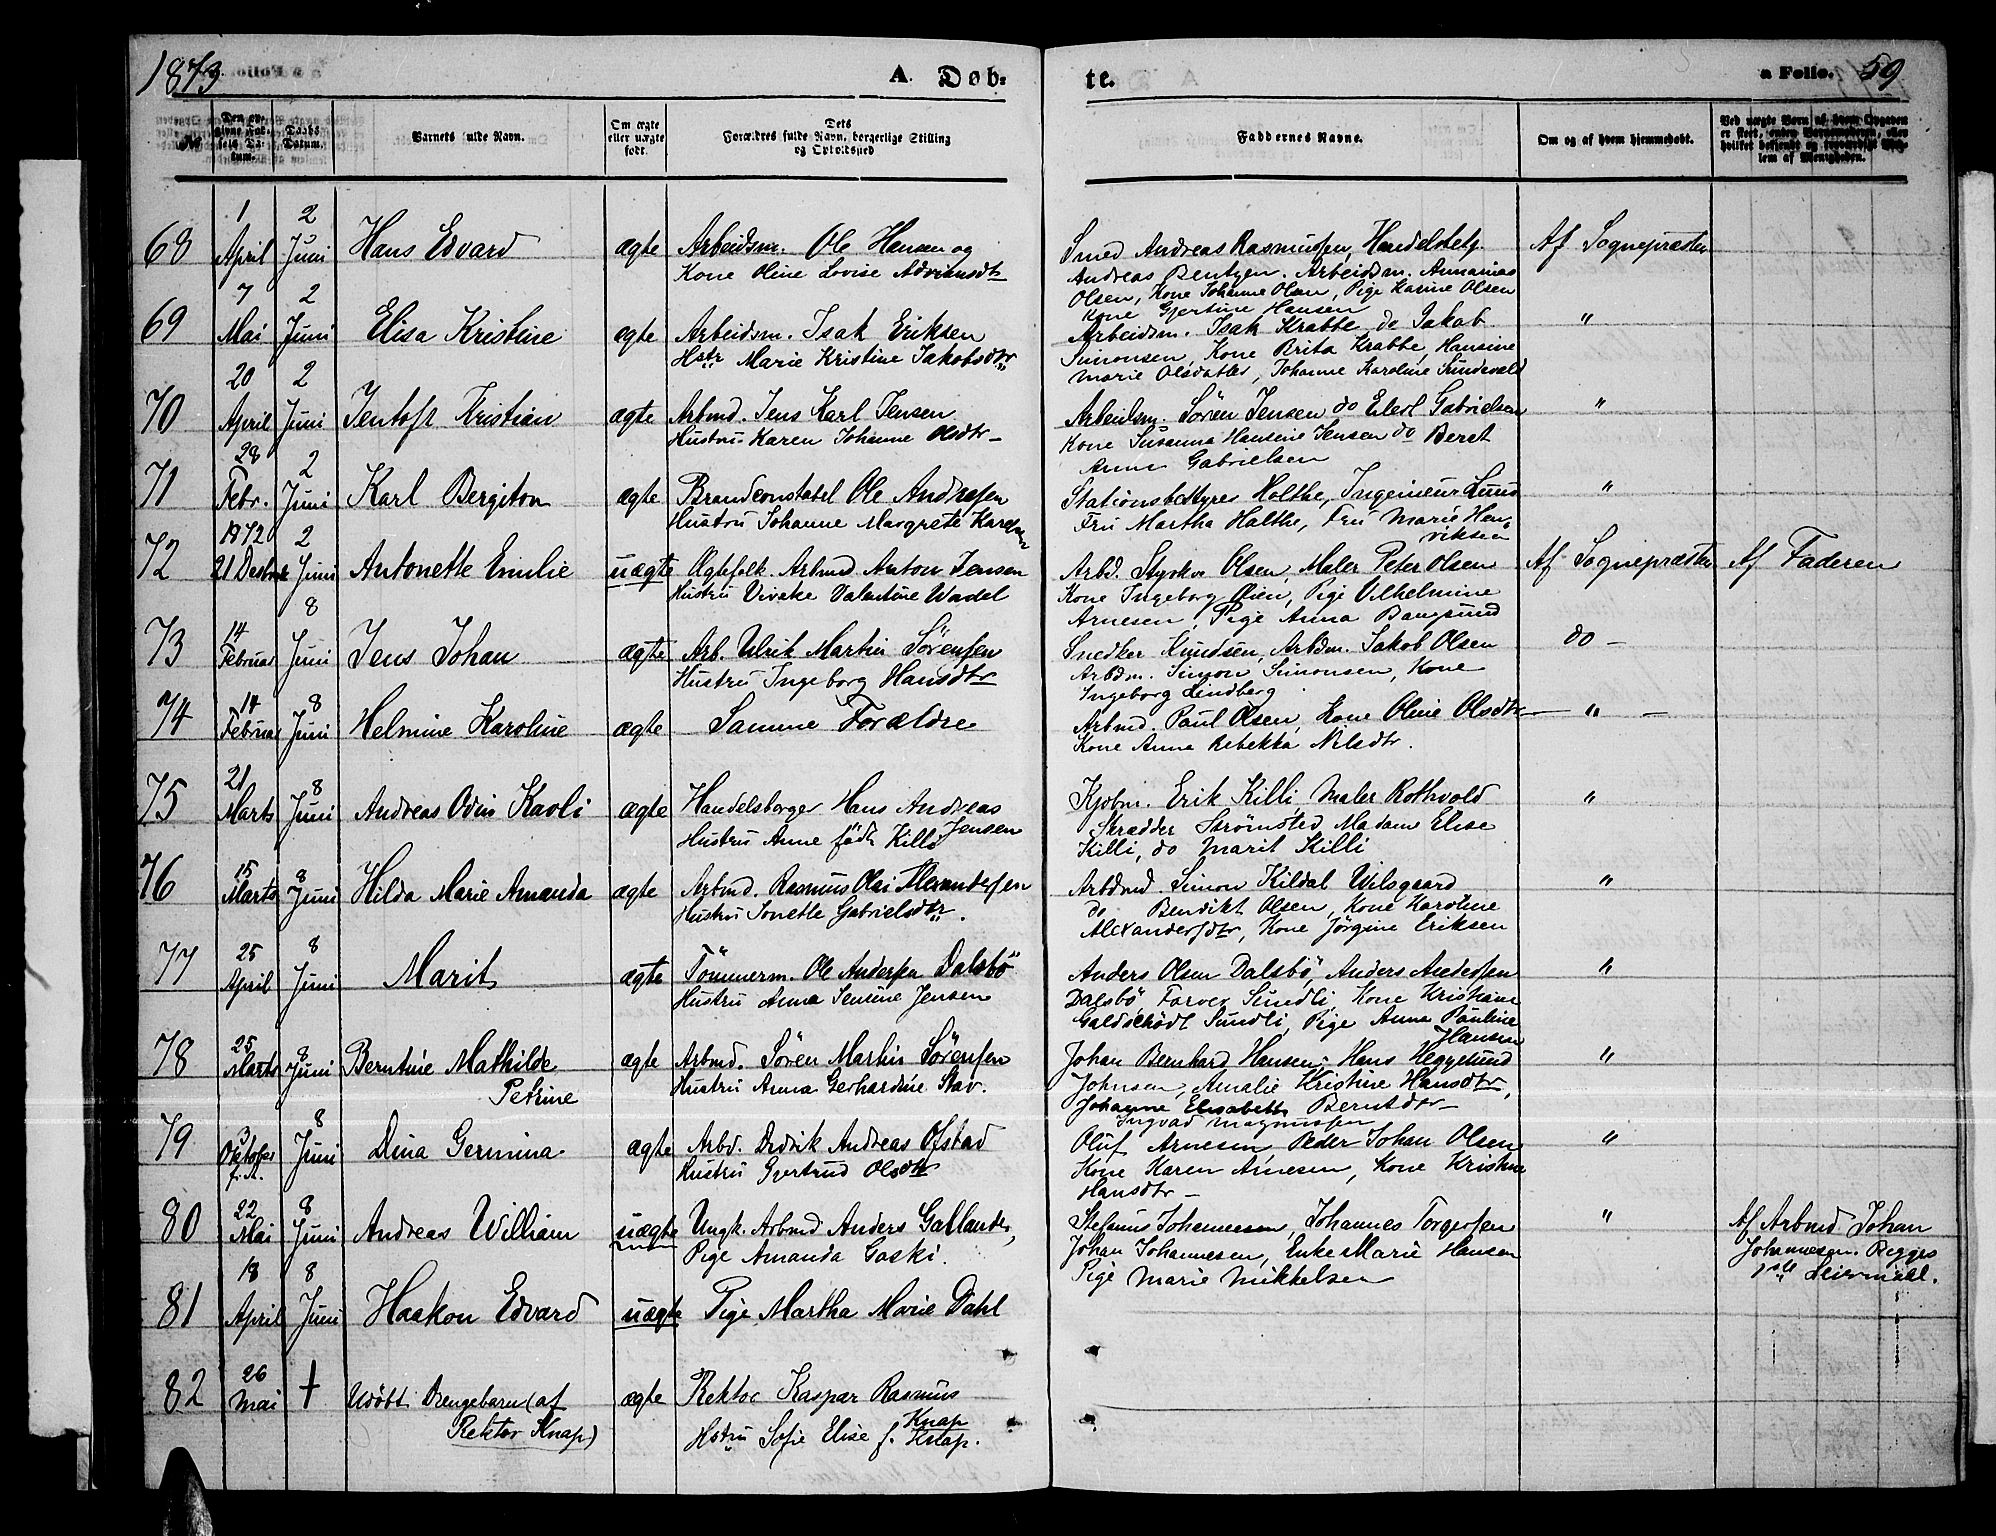 1873
A. Døb-
te.
a Folio. 59
No
Den opgivne Fødsels Datum.
Daabs Datum.
Barnets fulde Navn.
Om ægte eller uægte født.
Dets Forældres fulde Navn, borgerlige Stilling og Opholdssted
Faddernes Navne.
Om og af hvem hjemmedøbt.
Ved uægte Børn af hvem Opgaven er skeet, enten Barnemoderen, eller hvilket bekjendt og troværdigt Medlem af Menigheden.
68 1 April 2 Juni Hans Edvard ægte Arbeidsm. Ole Hansen og
Kone Oline Lovise Adriansdtr
Smed Andreas Rasmussen, Handelsbetj.
Andreas Bentzen. Arbeidsm. Annanias
Olsen, Kone Johanne Olsen, Pige Karine Olsen
Kone Gjertine Hansen
Af Sognepræsten
69 7 Mai 2 Juni Elisa Kristine ægte Arbeidsm. Isak Eriksen
Hstr Marie Kristine Jakobsdtr
Arbeidsm. Isak Krabbe, do Jakob
Simonsen, Kone Brita Krabbe, Hansine
Marie Olsdatter, Johanne Karoline Sundevald
"
70 20 April 2 Juni Jentoft Kristian ægte Arbmd. Jens Karl Jensen
Hustru Karen Johanne Olsdtr -
Arbeidsm. Sören Jensen do Elert Gabrielsen
Kone Susanna Hansine Jensen do Beret
Anna Gabrielsen
"
71 28 Febr. 2 Juni Karl Bergiton ægte Brandconstabel Ole Andresen
Hustru Johanne Margrete Karlsen
Stationsbestyrer Holthe, Ingenieur Lund
Fru Martha Holthe, Fru Marie Hen-
riksen
"
72 1872 21 Decbr 2 Juni Antonette Emilie uægte Ægtefolk. Arbmd Anton Jensen
Hustru Viveke Valentine Wadel
Arbd. Styrker Olsen, Maler Peter Olsen
Kone Ingeborg Olsen, Pige Vilhelmine
Arnesen, Pige Anna Bangsund
Af Sognepræsten Af Faderen
73 14 Februar 8 Juni Jens Johan ægte Arb. Ulrik Martin Sörensen
Hustru Ingeborg Hansdtr
Snedker Knudsen, Arbdm. Jakob Olsen
Arbdm. Simon Simonsen, Kone
Ingeborg Lindberg
do -
74 14 Februar 8 Juni Helmine Karoline ægte Samme Forældre
Arbmd. Paul Olsen, Kone Oline Olsdtr
Kone Anna Rebekka Nilsdtr.
- " -
75 21 Marts 8 Juni Andreas Odin Kaoli ægte Handelsborger Hans Andreas
Jensen
Hustru Anne född Killi
Kjøbm. Erik Killi, Maler Rothvold
Skrædder Strømsted Madam Elise
Killi, do Marit Killi
"
76 15 Marts 8 Juni Hilda Marie Amanda ægte Arbmd. Rasmus Olai Alexandersen
Hustru Jonette Gabrielsdtr.
Arbdmd. Simon Kildal Wilsgaard
do Bendikt Olsen, Kone Karoline
Alexandersdtr, Kone Jörgine Eriksen
"
77 25 April 8 Juni Marit ægte Tömmerm. Ole Andersen Dalsbö
Hustru Anna Jensine Jensen
Anders Olsen Dalsbö, Anders Andersen
Dalsbö Farver Sundli, Kone Kristiane
Galdschödt Sundli, Pige Anna Pauline
Hansen
"
78 25 Marts 8 Juni Berntine Mathilde
Petrine
ægte Arbmd. Sören Martin Sörensen
Hustru Anna Gerhardine Stav.
Johan Bernhard Hansen, Hans Heggelund
Johnsen, Amalie Kristine Hansdtr,
Johanne Elisabeth Berntdtr -
Ingvad Magnussen
"
79 3 Oktober f. A. 8 Juni Dina Germina ægte Arbd. Didrik Andreas Ofstad
Hustru Gjertrud Olsdtr
Oluf Arnesen, Peder Johan Olsen
Kone Karen Arnesen, Kone Kristine
Hansdtr -
"
80 22 Mai 8 Juni Andreas William uægte Ungk. Arbmd. Anders Gallander,
Pige Amanda Gaski.
Stefanus Johannesen, Johannes Torgersen
Johan Johannesen, Enke Marie Hansen
Pige Marie Mikkelsen
"
Af Arbmd Johan
Johannesen. Begges
1ste Leiermaal.
81 18 April 8 Juni Haakon Edvard uægte Pige Martha Marie Dahl
82 26 Mai + Udöbt Drengebarn (af
Rektor Knap)
ægte Rektor Kaspar Rasmus
Knap
Hstru Sofie Elise f. Knap.